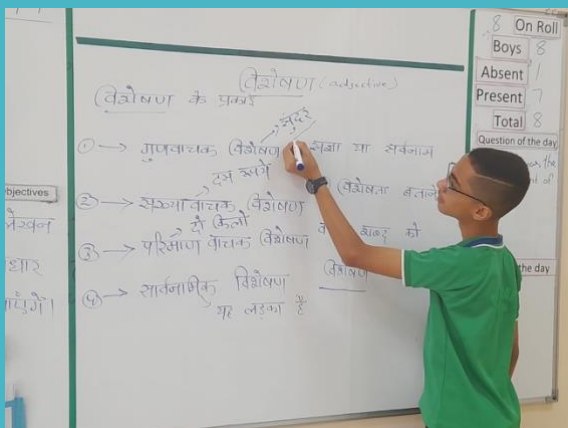 विशेषण (adjective)
विशेषण के प्रकार
सुंदर
① → गुणवाचक विशेषण संज्ञा या सर्वनाम
दस रुपये
विशेषता बताने
② → संख्यावाचक विशेषण
दो किलो
शब्द को
③ → परिमाण वाचक विशेषण
विशेषण
④ → सार्वनामिक विशेषण
यह लड़का है
bjectives
लेखन
धार
8 On Roll
Boys 8
Absent 1
Present 7
Total 8
Question of the day
the
of
the day